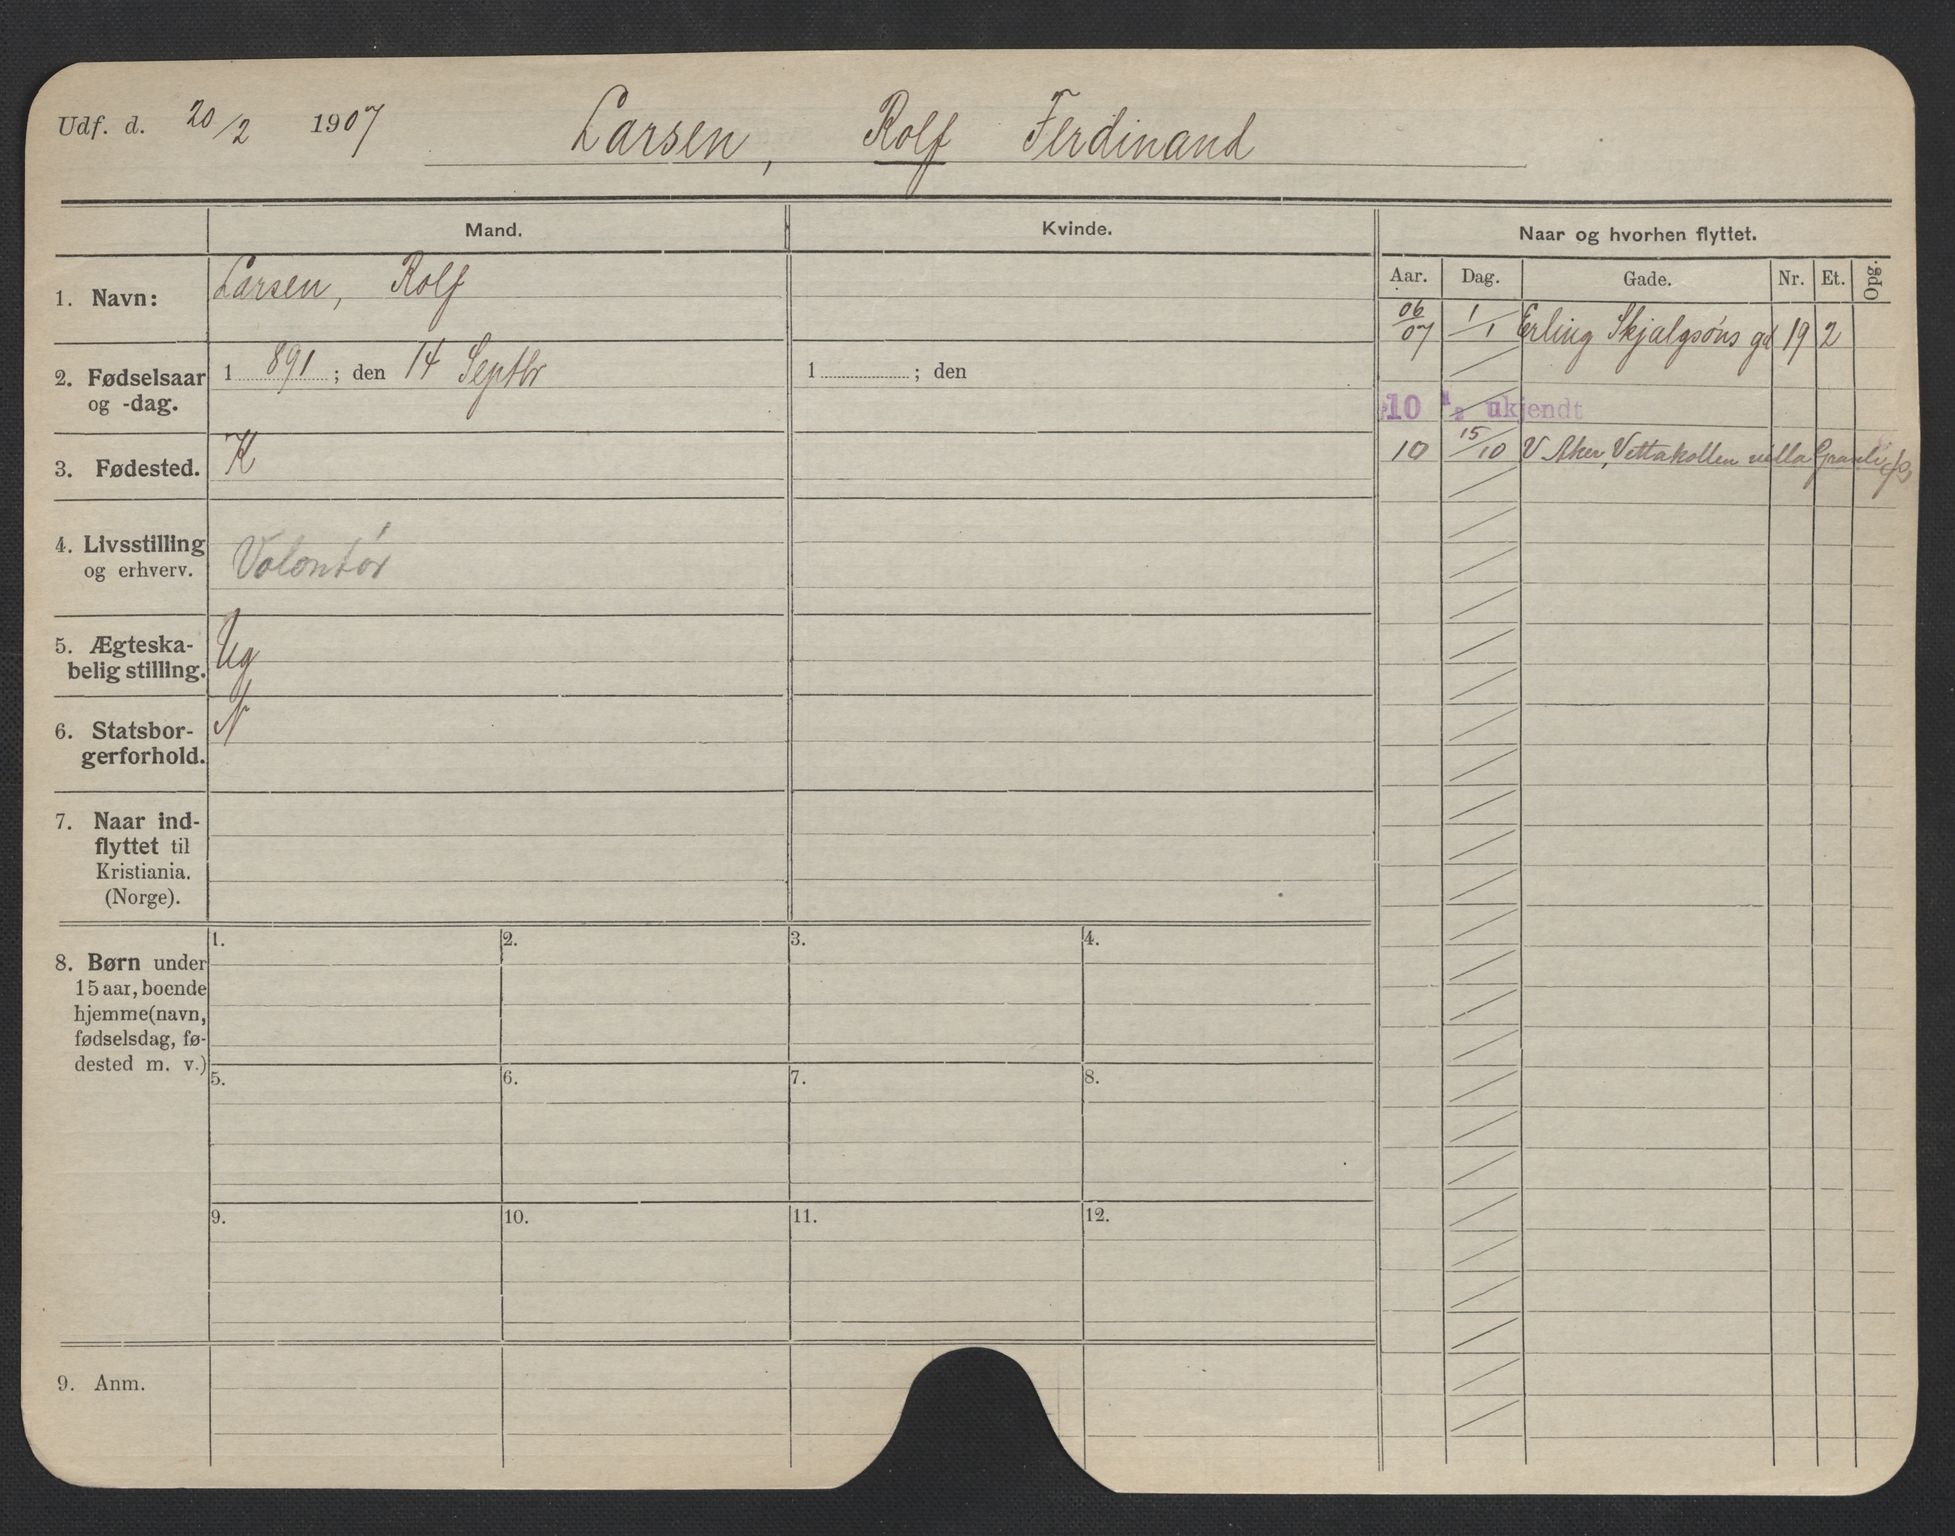 Udf. d. 20/2 1907 Larsen, Rolf Ferdinand
Mand. Kvinde. Naar og hvorhen flyttet.
Aar. Dag. Gade. Nr. Et. Opg.
1. Navn: Larsen, Rolf
06/07 1/1 Erling Skjalgsøns gd 19 2
2. Fødselsaar 1891; den 14 Septbr 1 ; den
og -dag.
10 1/2 ukjendt
3. Fødested. K
10 15/10 V Aker, Vettakollen villa Granli
4. Livsstilling
og erhverv. Volontør
5. Ægteska-
belig stilling. Ug
6. Statsbor-
gerforhold. N
7. Naar ind-
flyttet til
Kristiania.
(Norge).
1. 2. 3. 4.
8. Børn under
15 aar, boende
hjemme (navn,
fødselsdag, fø-
dested m. v.)
5. 6. 7. 8.
9. 10. 11. 12.
9. Anm.